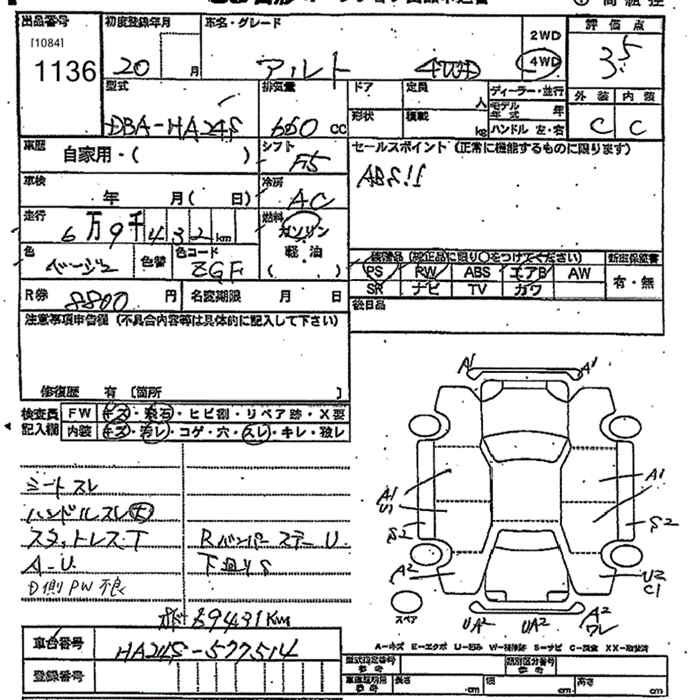 出品番号 初度登録年月 車名・グレード 2WD 評価点
[1084]
1136 20 月 アルト 4WD 4WD 3.5
型式 排気量 ドア 定員 人 ディーラー・並行 外装 内装
DBA-HA24S 660 cc 形状 積載 kg モデル年式 年 C C
ハンドル 左・右
車歴 自家用・( ) シフト F5 セールスポイント (正常に機能するものに限ります)
車検 年 月( 日) 冷房 AC ABS!!
走行 6万9千432km 燃料 ガソリン
軽・油
( )
色 ベージュ 色替 色コード ZGF
装備品 (純正品に限り○をつけてください) 新車保証書
PS PW ABS エアB AW 有・無
SR ナビ TV カワ
R券 8800 円 名変期限 月 日 後日品
注意事項申告欄 (不具合内容等は具体的に記入して下さい)
修復歴 有 [箇所 ]
検査員 FW キズ・飛石・ヒビ割・リペア跡・X要
記入欄 内装 キズ・汚レ・コゲ・穴・スレ・キレ・破レ
A1 A1
A1 A1
U1
S2 S2
A2 U2
C1
スペア UA2 UA2 A2
ワレ
シートスレ
ハンドルスレ大
スタットレス・T RバンパーステーU.
A-U 下廻りS
D側PW不良
69431Km
車台番号 HA24S-577514
登録番号
A-キズ E-エクボ U-凹み W-補修跡 S-サビ C-腐食 XX-取替済
型式指定番号 類別区分番号
参考 参考
長さ cm 幅 cm 高さ cm